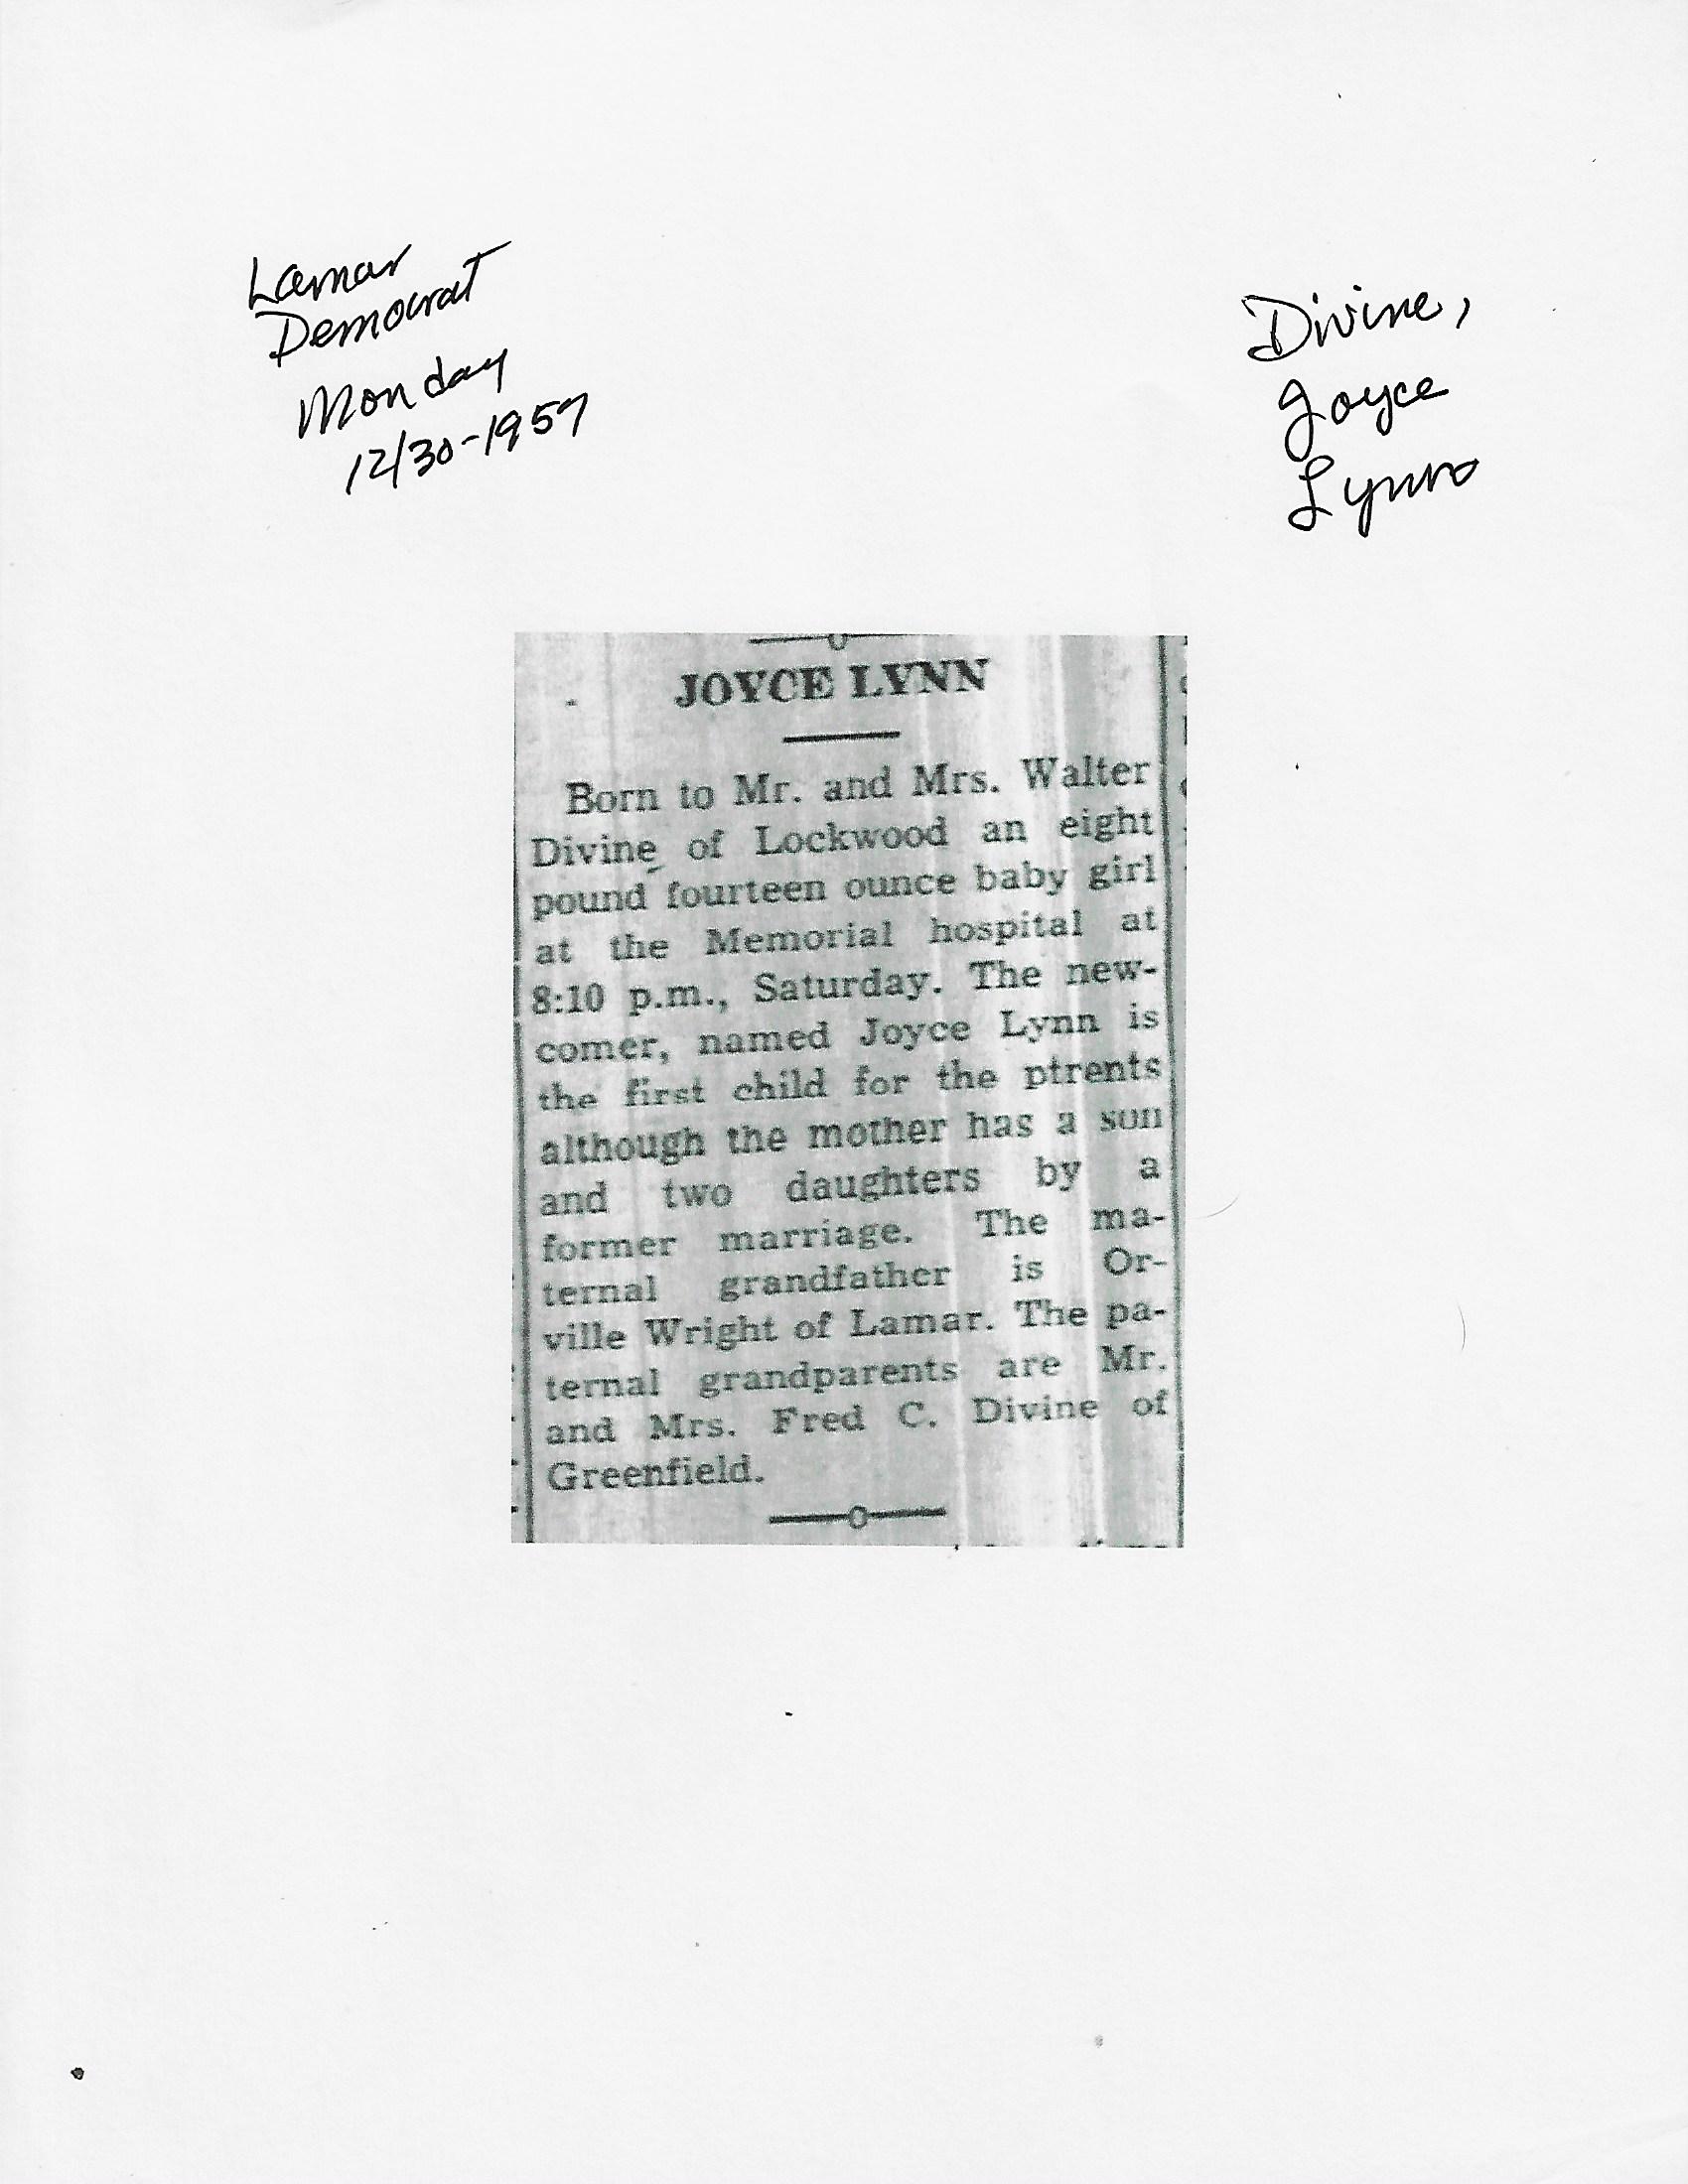 Lamar
Democrat
Monday
12/30-1957
Divine,
Joyce
Lynn
JOYCE LYNN
Born to Mr. and Mrs. Walter
Divine of Lockwood an eight
pound fourteen ounce baby girl
at the Memorial hospital at
8:10 p.m., Saturday. The new-
comer, named Joyce Lynn is
the first child for the ptrents
although the mother has a son
and two daughters by a
former marriage. The ma-
ternal grandfather is Or-
ville Wright of Lamar. The pa-
ternal grandparents are Mr.
and Mrs. Fred C. Divine of
Greenfield.